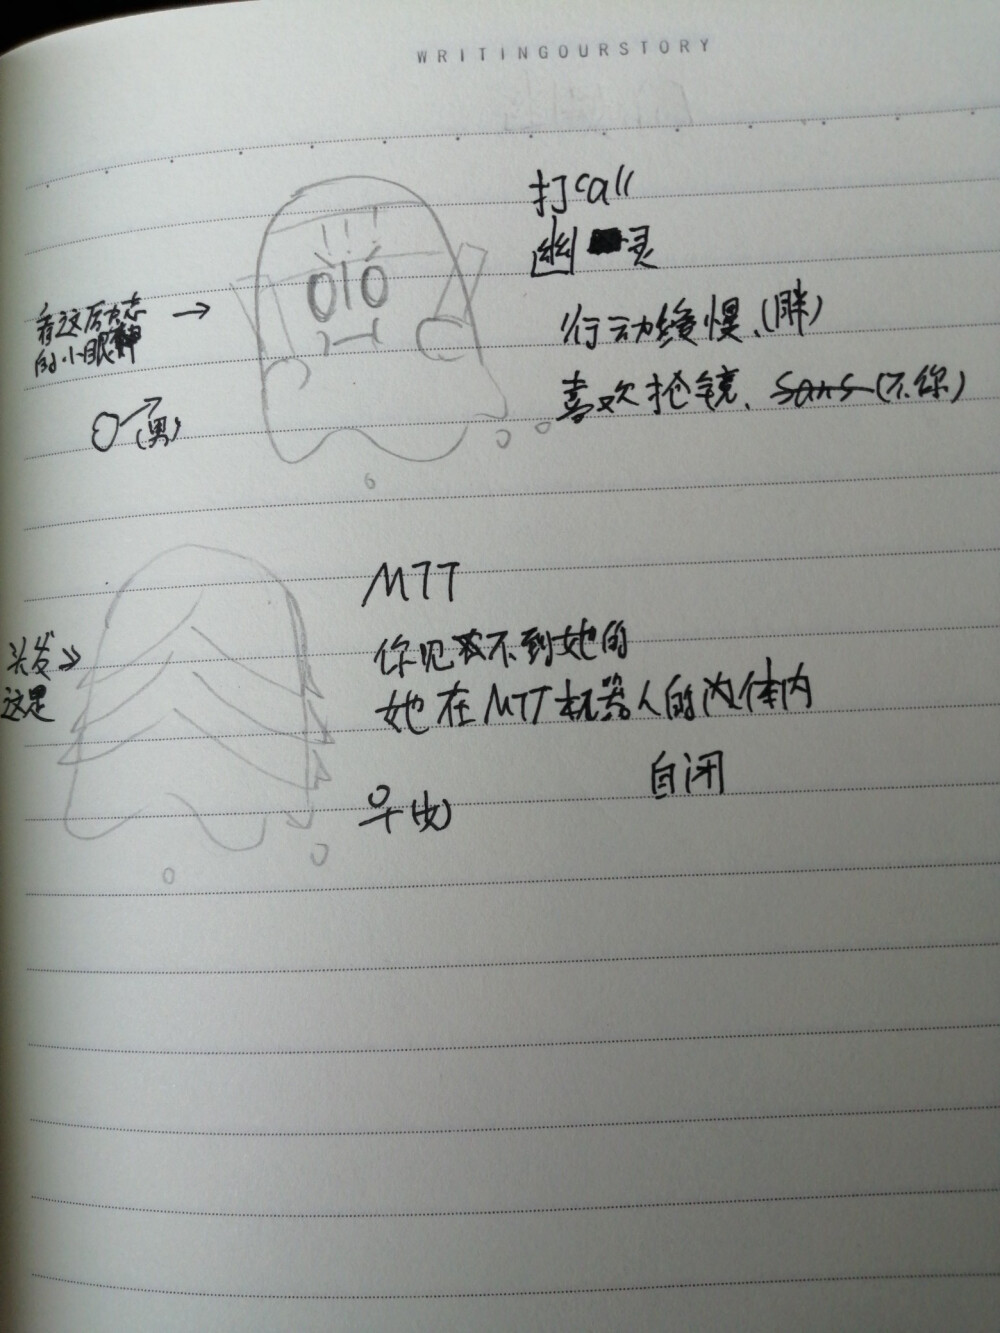 WRITINGOURSTORY
打call
幽灵
看这厉志
的小眼神
行动缓慢、(胖)
♂(男)
喜欢抢镜、sans(不，你)
MTT
头发
这是
你见不到她的
她在MTT机器人的内体内
自闭
♀(女)